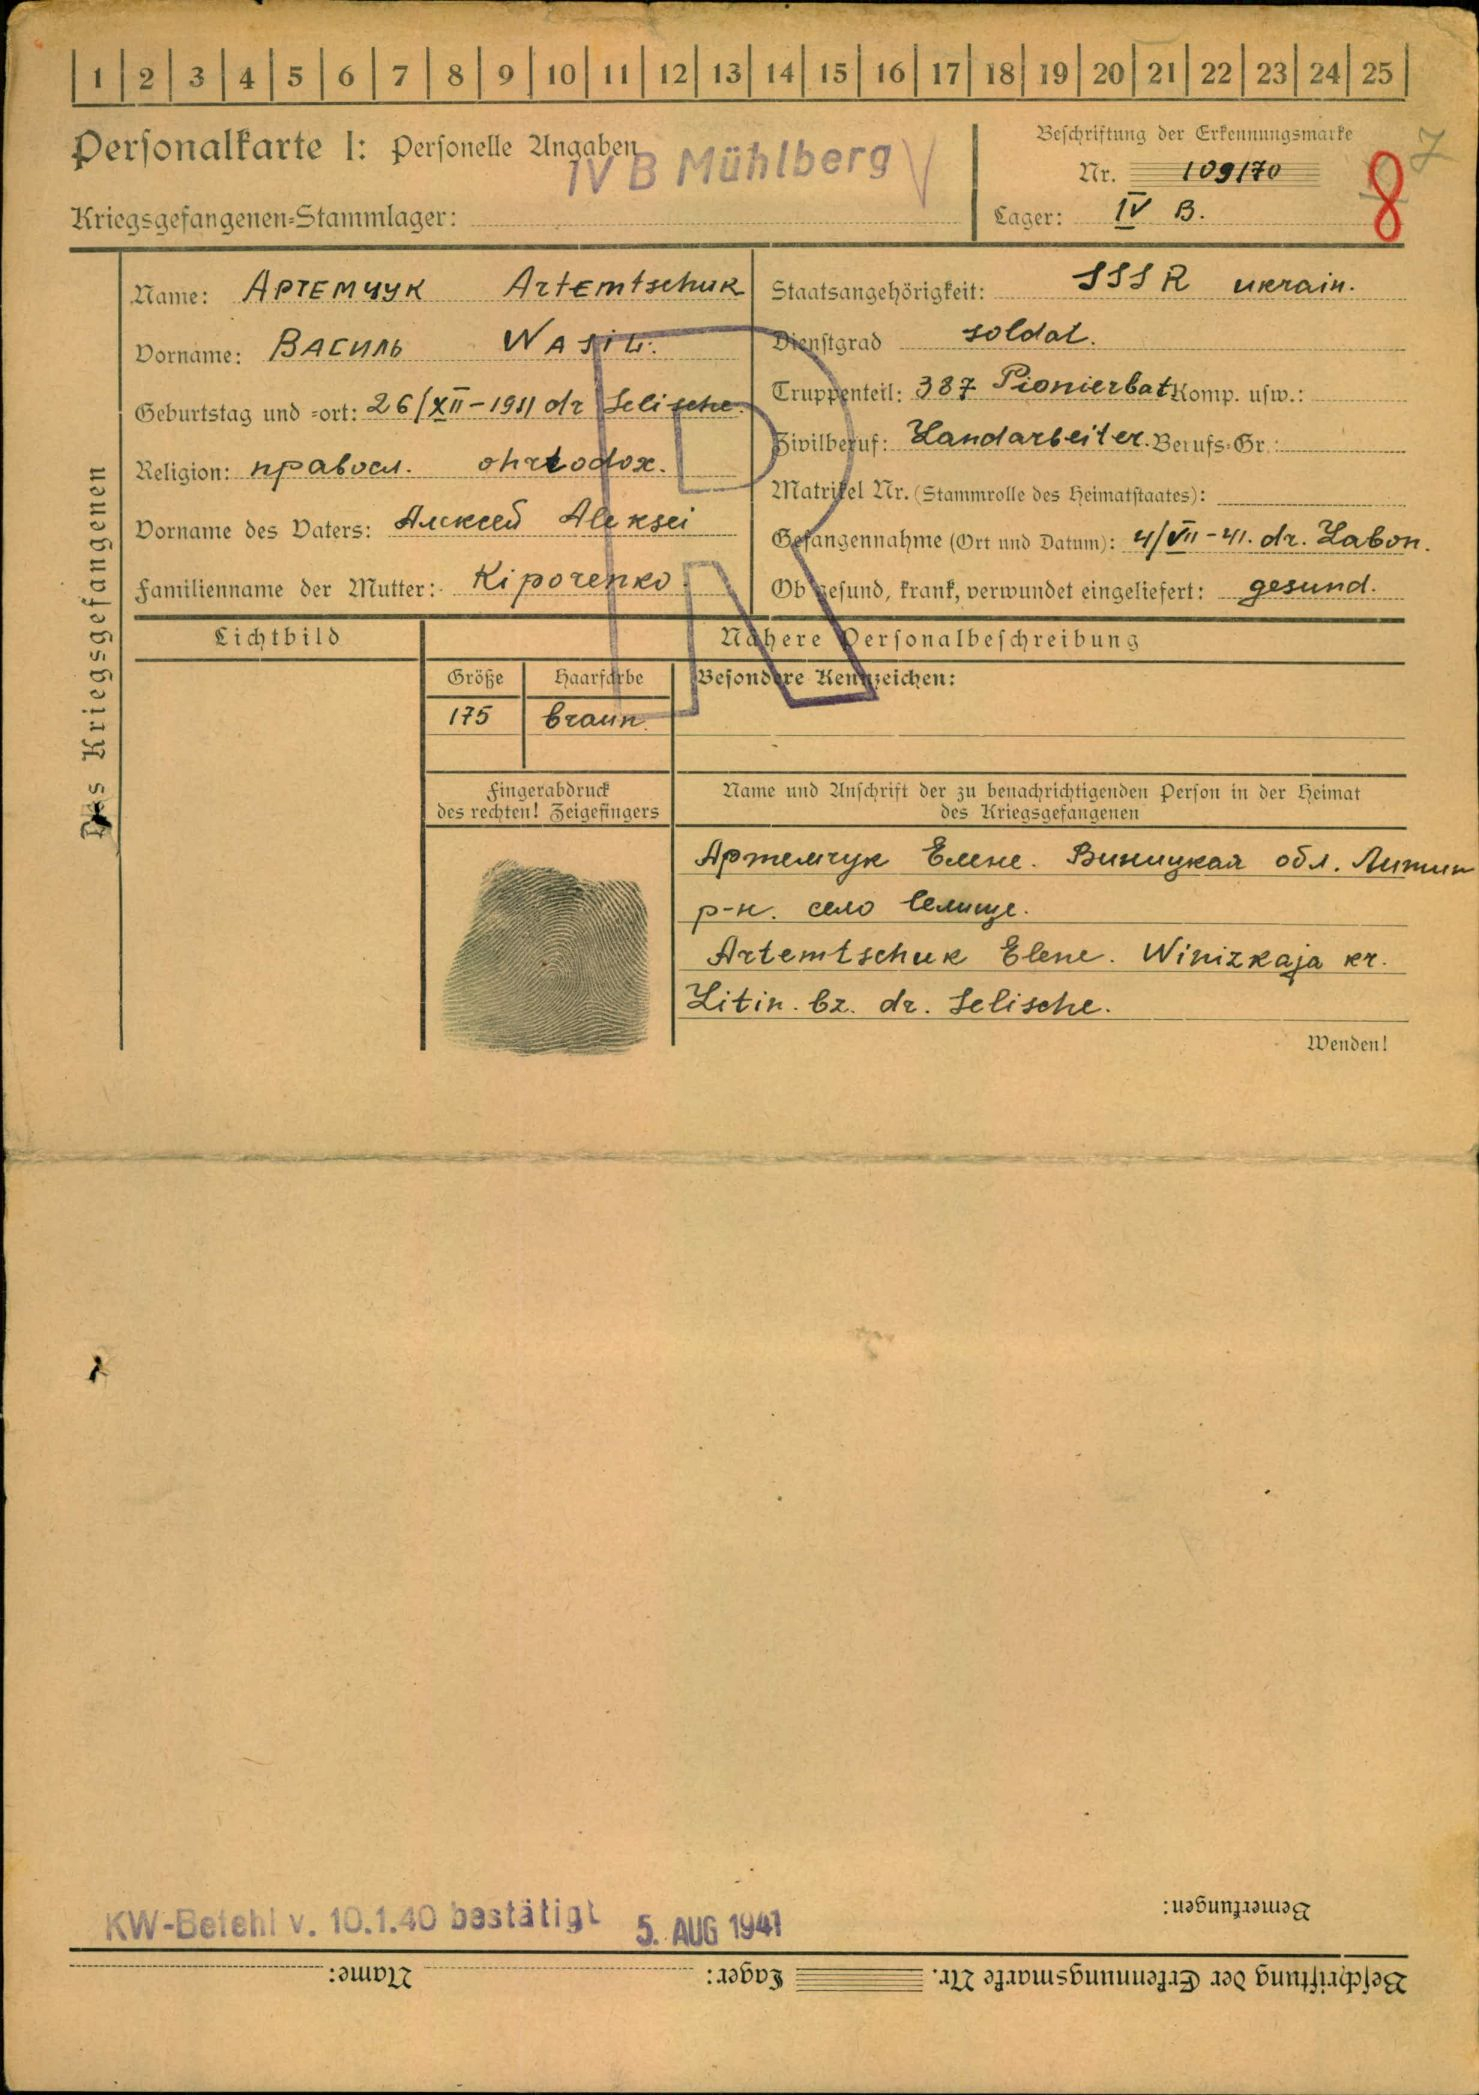 1 2 3 4 5 6 7 8 9 10 11 12 13 14 15 16 17 18 19 20 21 22 23 24 25
Personalkarte I: Personelle Angaben
IV B Mühlberg
Kriegsgefangenen-Stammlager:
Beschriftung der Erkennungsmarke
Nr. 109170
Lager: IV B.
7
8
Des Kriegsgefangenen
Name: Артемчук Artemtschuk
Vorname: Василь Wasil.
Geburtstag und -ort: 26/XII-1911 dr Selische.
Religion: правосл. ohrtodox.
Vorname des Vaters: Алексей Aleksei
Familienname der Mutter: Kiporenko.
Staatsangehörigkeit: SSSR ukrain.
Dienstgrad soldat.
Truppenteil: 387 Pionierbat Komp. usw.:
Zivilberuf: Landarbeiter. Berufs-Gr.:
Matrikel Nr. (Stammrolle des Heimatstaates):
Gefangennahme (Ort und Datum): 4/VII-41. dr. Labon.
Ob gesund, krank, verwundet eingeliefert: gesund.
R
Lichtbild
Nähere Personalbeschreibung
Größe Haarfarbe Besondere Kennzeichen:
175 braun.
Fingerabdruck
des rechten! Zeigefingers
Name und Anschrift der zu benachrichtigenden Person in der Heimat
des Kriegsgefangenen
Артемчук Елене. Виницкая обл. Литин
р-н. село Селище.
Artemtschuk Elene. Winizkaja kr.
Litin. bz. dr. Selische.
Wenden!
Bemerkungen:
KW-Befehl v. 10.1.40 bestätigt 5. AUG 1941
Beschriftung der Erkennungsmarke Nr. Lager: Name: